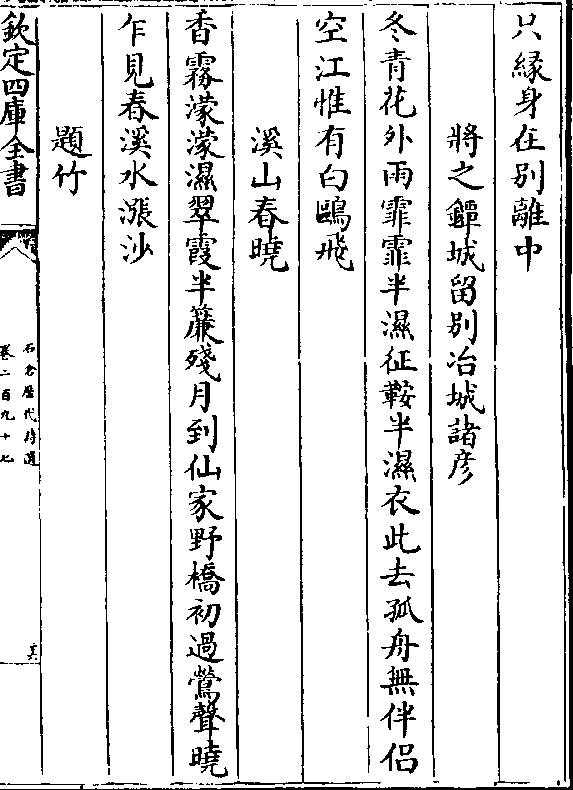 只緣身在別離中
將之鐔城留別冶城諸彦
冬青花外雨霏霏半濕征鞍半濕衣此去孤舟無伴侣
空江惟有白鷗飛
溪山春曉
香霧濛濛濕翠霞半簾殘月到仙家野橋初過鶯聲曉
乍見春溪水漲沙
題竹
欽定四庫全書
石倉歷代詩選
卷二百九十七